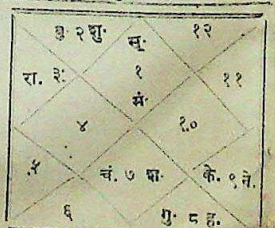 बु. २ शु. सू. १२
रा. ३. १ ११
मं.
४ १०
५ चं. ७ श. के. ९ ने.
६ गु. ८ ह.